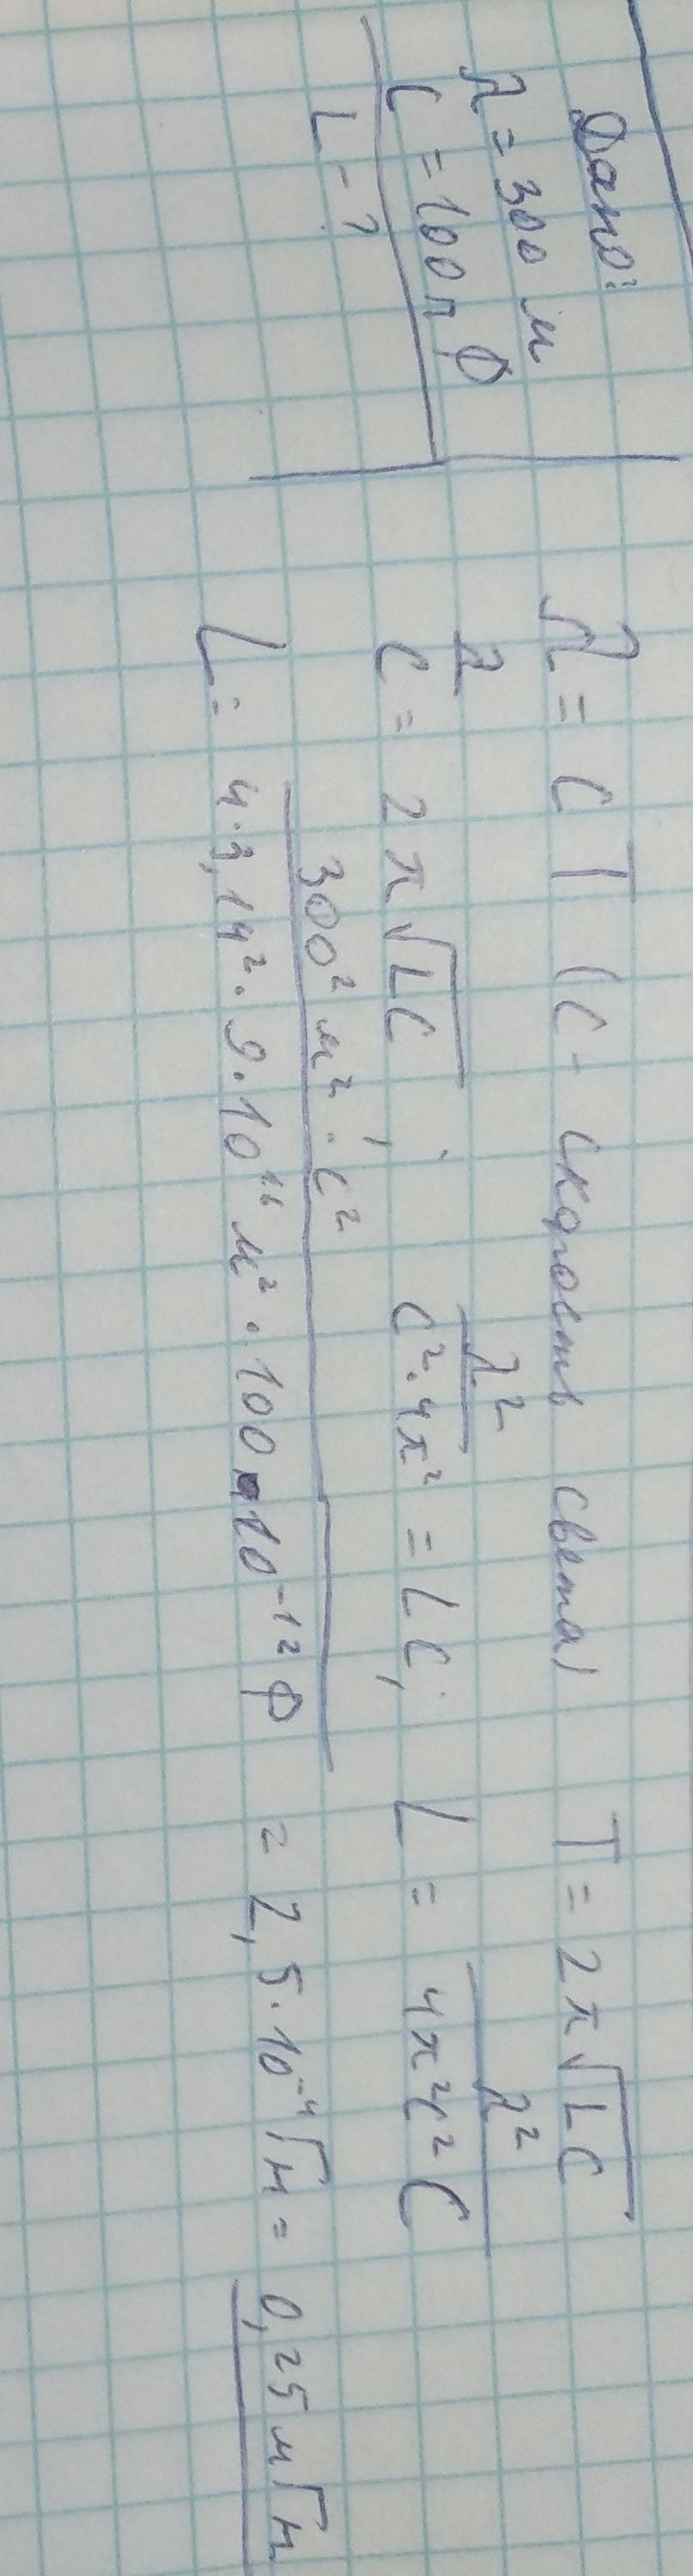 Дано:
λ = 300 м
C = 100 п Ф
L - ?
λ = c T (c - скорость света) T = 2π√LC
λ/c = 2π√LC; λ²/c²·4π² = LC; L = λ²/4π²c²C
L = 300² м² · c²/4·3,14²·9·10¹⁶ м²·100·10⁻¹² Ф = 2,5·10⁻⁴ Гн = 0,25 мГн